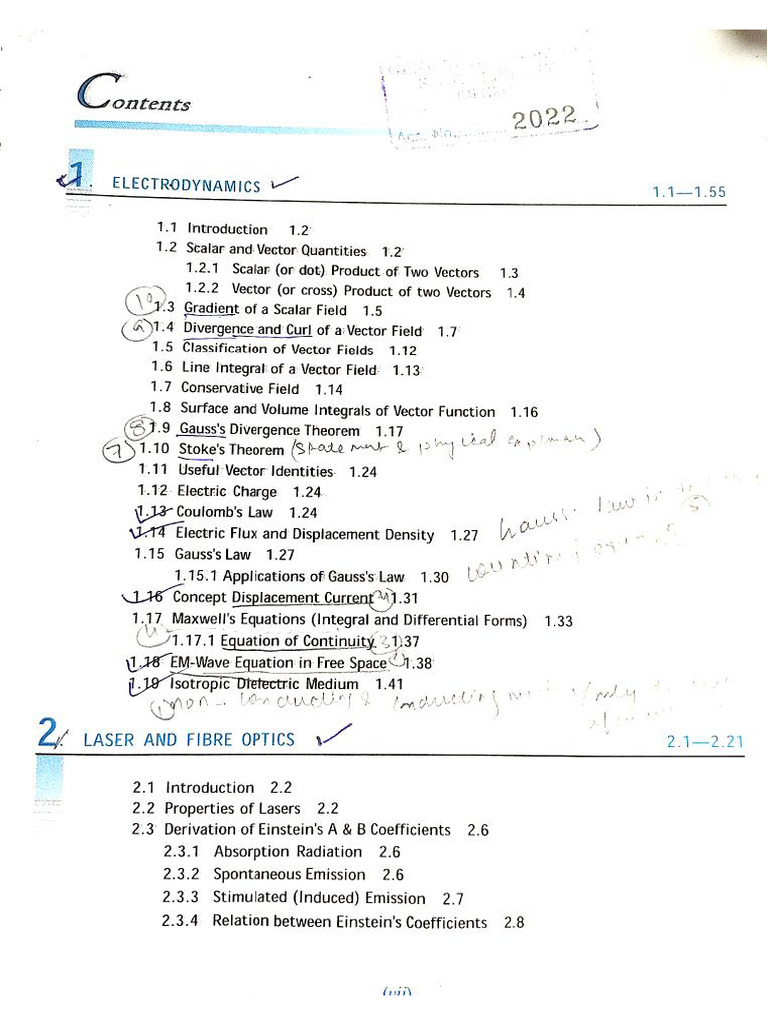 Contents
2022
1. ELECTRODYNAMICS 1.1—1.55
1.1 Introduction 1.2
1.2 Scalar and Vector Quantities 1.2
1.2.1 Scalar (or dot) Product of Two Vectors 1.3
1.2.2 Vector (or cross) Product of two Vectors 1.4
10 1.3 Gradient of a Scalar Field 1.5
9 1.4 Divergence and Curl of a Vector Field 1.7
1.5 Classification of Vector Fields 1.12
1.6 Line Integral of a Vector Field 1.13
1.7 Conservative Field 1.14
1.8 Surface and Volume Integrals of Vector Function 1.16
8 1.9 Gauss's Divergence Theorem 1.17
7 1.10 Stoke's Theorem (Statement & physical
1.11 Useful Vector Identities 1.24
1.12 Electric Charge 1.24
1.13 Coulomb's Law 1.24
1.14 Electric Flux and Displacement Density 1.27
Gauss law in
5
1.15 Gauss's Law 1.27
1.15.1 Applications of Gauss's Law 1.30
1.16 Concept Displacement Current 1.31
1.17 Maxwell's Equations (Integral and Differential Forms) 1.33
1.17.1 Equation of Continuity 3 1.37
1.18 EM-Wave Equation in Free Space 1.38
1.19 Isotropic Dielectric Medium 1.41
1 non-conducting & conducting only
2. LASER AND FIBRE OPTICS 2.1—2.21
2.1 Introduction 2.2
2.2 Properties of Lasers 2.2
2.3 Derivation of Einstein's A & B Coefficients 2.6
2.3.1 Absorption Radiation 2.6
2.3.2 Spontaneous Emission 2.6
2.3.3 Stimulated (Induced) Emission 2.7
2.3.4 Relation between Einstein's Coefficients 2.8
(vii)